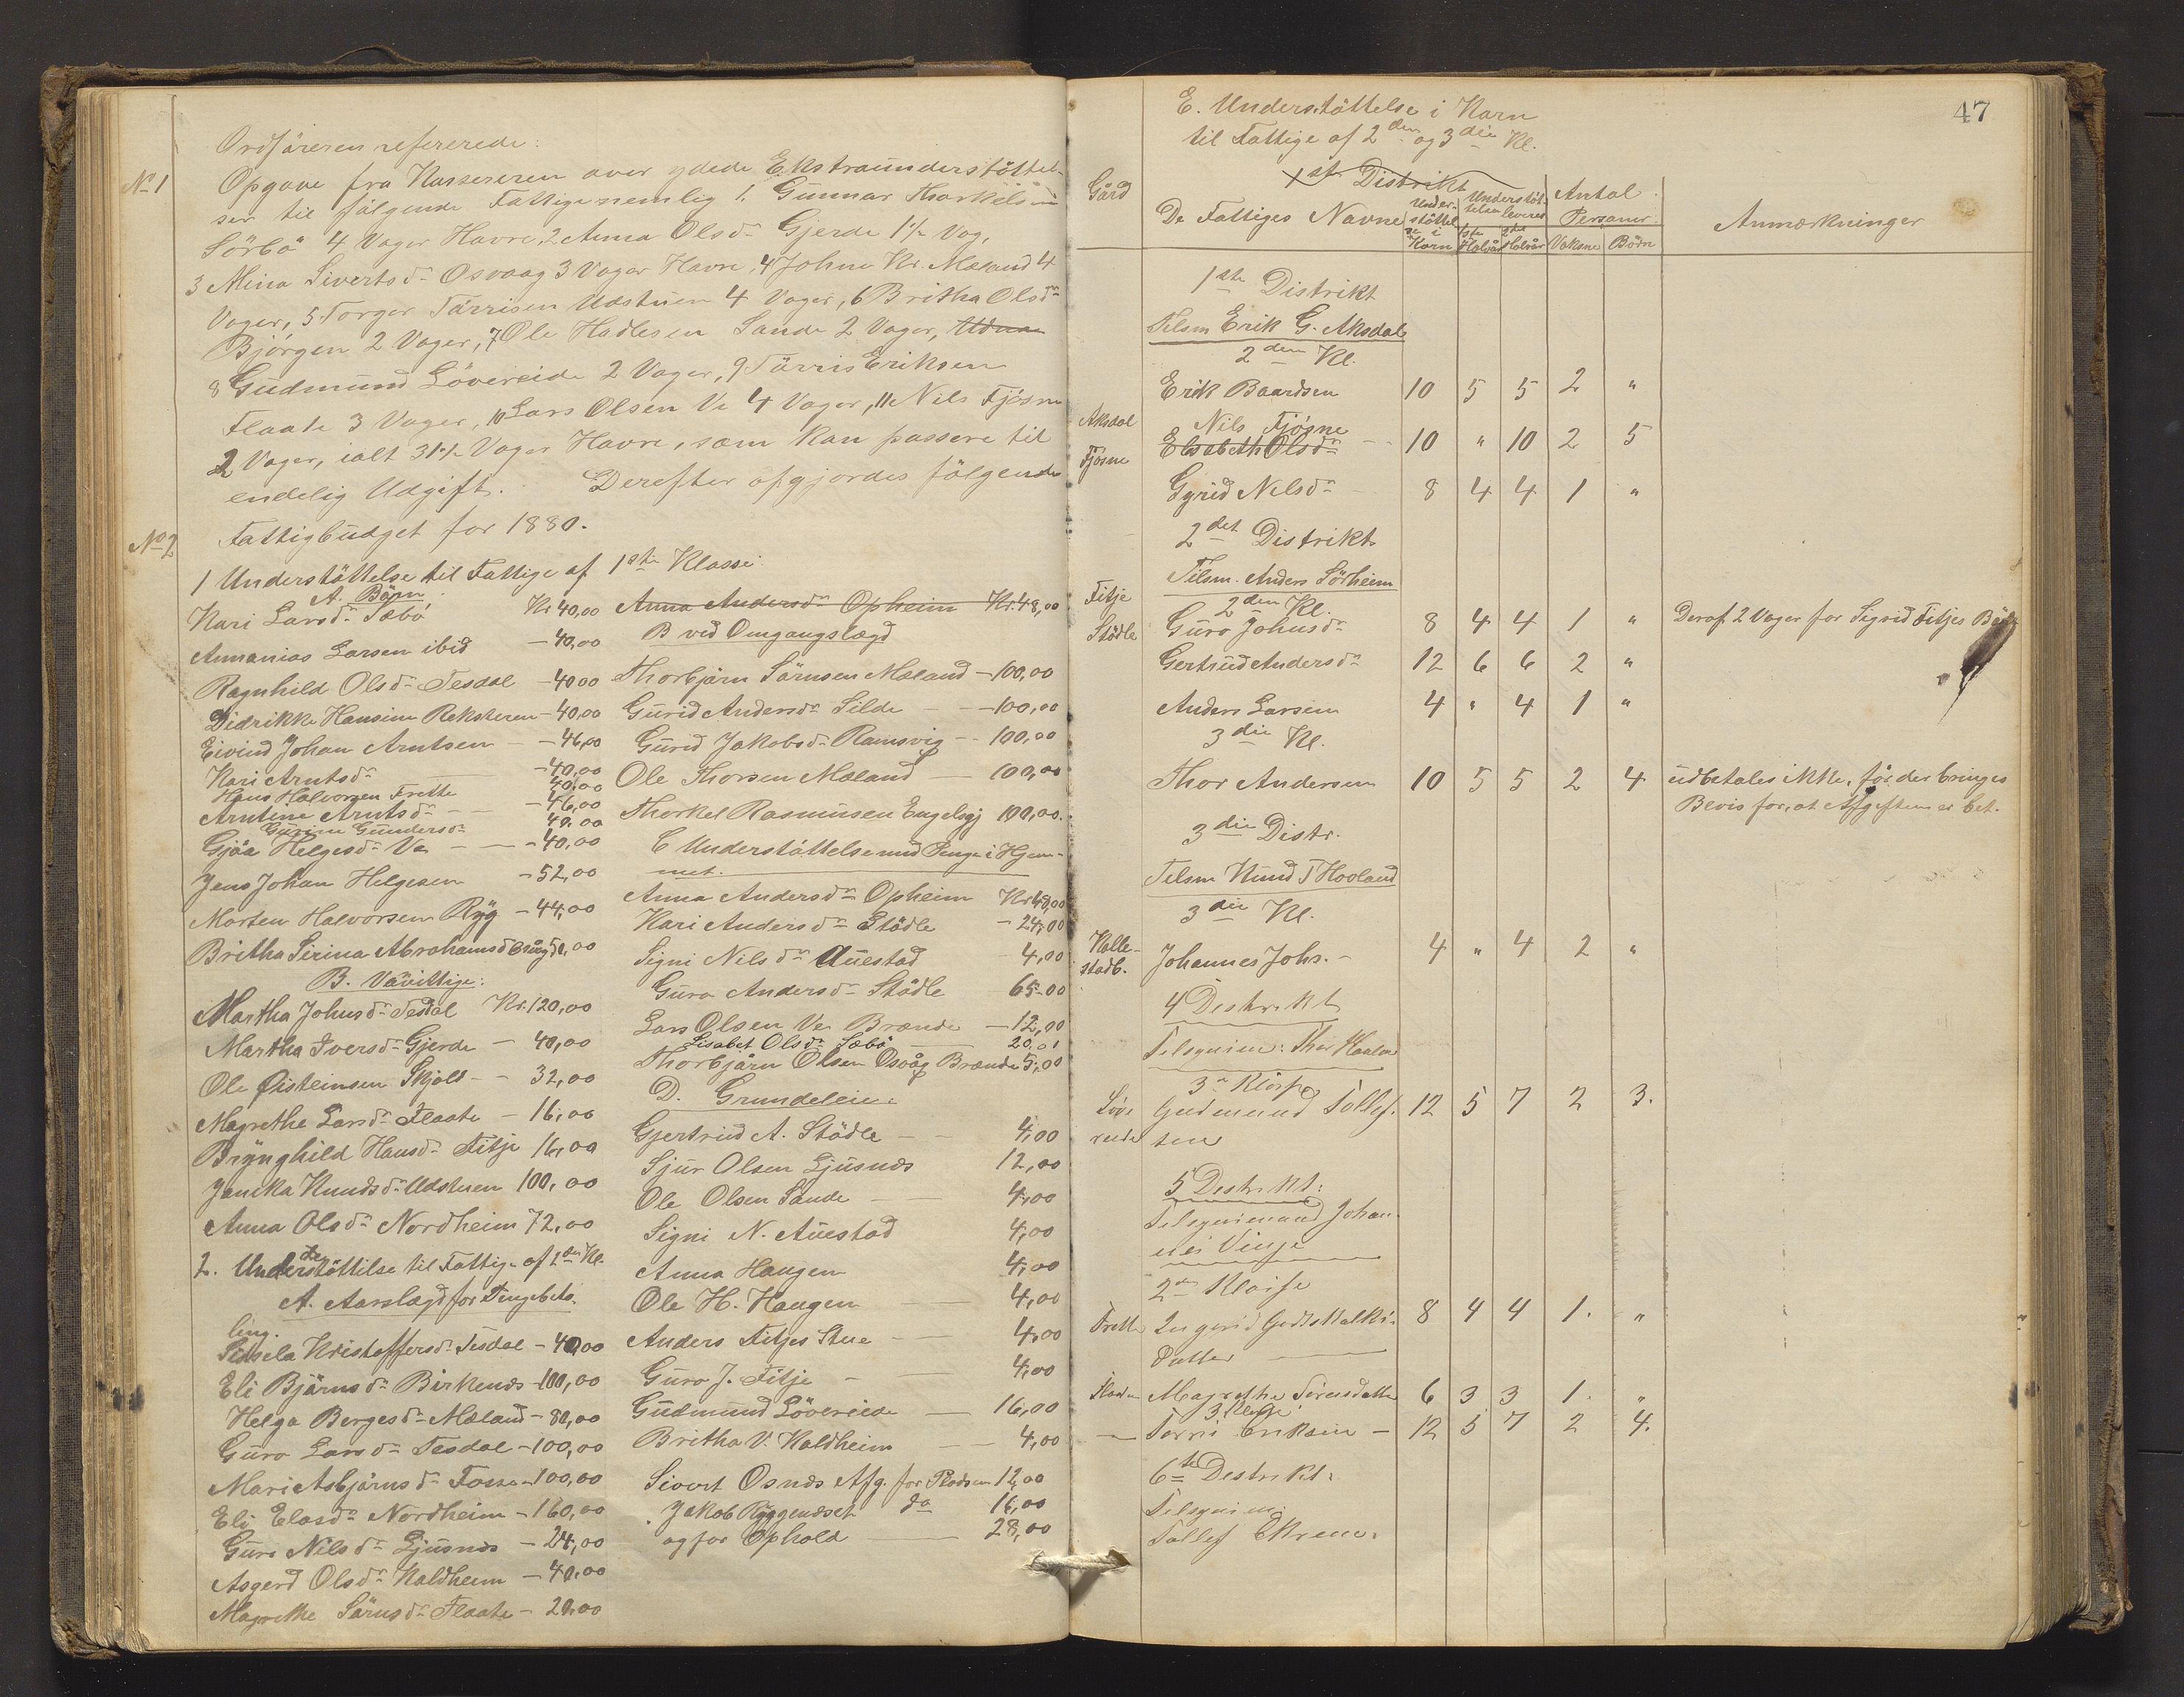 Ordføreren refererede:
No 1 Opgave fra Kassereren over ydede Ekstraunderstøttel-
ser til følgende Fattige nemlig 1. Gunnar Thorkels
Sörbö 4 Vager Havre, 2 Anna Olsdr Gjerde 1½ Vog,
3 Mina Sivertsdr Osvaag 3 Vager Havre, 4 Johne Kr. Mæland 4
Vager, 5 Torger Tärrisen Udstuen 4 Vager, 6 Britha Olsdr
Björgen 2 Vager, 7 Ole Hadlesen Sande 2 Vager,
8 Gudmund Lövereide 2 Vager, 9 Tärris Eriksen
Flaate 3 Vager, 10 Lars Olsen Ve 4 Vager, 11 Nils Fjösne
2 Vager, ialt 31½ Vager Havre, som kan passere til
endelig Udgift. Derefter afgjordes fölgende
No 2 Fattigbudget for 1880.
1 Understöttelse til Fattige af 1ste Klasse
A. Börn
Kari Larsdr Sæbö Kr 40,00
Annanias Larsen ibid - 40,00
Ragnhild Olsdr Tesdal - 40 00
Didrikke Hansine Reksteren - 40,00
Eivind Johan Arntsen - 46,00
Kari Arntsdr - 40,00
Hans Halvorsen Frette 40,00
Arntine Arntsdr - 46,00
Gurine Gundersdr 40,00
Gjöa Helgesdr Ve - 40,00
Jens Johan Helgesen - 52,00
Morten Halvorsen Ryg - 44,00
Britha Sirina Abrahamsd
B. Vanvittige:
Martha Johnsdr Tesdal Kr. 120,00
Martha Iversdr Gjerde - 40,00
Ole Øisteinsen Skjold - 32,00
Magrethe Larsdr Flaate - 16,00
Brynghild Hansdr Fitje 16,00
Janika Knudsdr Udstuen 100,00
Anna Olsdr Nordheim 72,00
2. Understöttelse til Fattige af 2den Kl.
A. Aarslægd for Pengebeta-
ling.
Sissela Kristoffersdr Tesdal - 40,00
Eli Bjärnsdr Birkenes - 100,00
Helga Bergesdr Mæland - 80,00
Guro Larsdr Tesdal - 100,00
Mari Asbjörnsdr Fosse - 100,00
Eli Elasdr Nordheim - 160,00
Guro Nilsdr Ljusnes - 24,00
Asgerd Olsdr Kaldheim - 40,00
Magrethe Särnsdr Flaate - 20,00
Anna Andersdr Opheim Kr. 48,00
B ved Omgangslægd
Thorbjärn Särnsen Mæland - 100,00
Gurid Andersdr Silde - 100,00
Gurid Jakobsdr Ramsvig - 100,00
Ole Thorsen Mæland - 100,00
Thorkel Rasmusen Engelsgj 100,00.
C Understöttelse med Penge i Hjem-
met.
Anna Andersdr Opheim Kr 48,00
Kari Andersdr Stödle - 24,00
Signi Nilsdr Auestad 4,00
Guro Andersdr Stödle 65-00
Lars Olsen Ve Brænde - 12,00
Lisabet Olsdr Sæbö 20,00
Thorbjärn Olsen Osvåg Brænde 5,00
D. Grundeleie:
Gjertrud A. Stödle 4,00
Sjur Olsen Ljusnes 12,00
Ole Olsen Sande 4,00
Signi N. Auestad 4,00
Anna Haugen 4,00
Ole H. Haugen 4,00
Anders Fitjes Stue 4,00
Guro J. Fitje 4,00
Gudmund Lövereide 16,00
Britha V. Kaldheim 4,00
Sivert Osnes Afg. for Pladsen 12,00
Jakob Ryggendset do 16,00
og for Ophold 28,00
47
E. Understöttelse i Korn
til Fattige af 2den og 3die Kl.
1st Distrikt
Gård De Fattiges Navne Understöttelse i Korn Understöttelsen leveres 1ste Halvår 2det Halvår Antal Personer Voksne Börn Anmærkninger
1ste Distrikt
Tilsm Erik G. Aksdal
2den Kl.
Erik Baardsen 10 5 5 2 "
Aksdal Nils Fjösne
Fjösne Elisabeth Olsdr 10 " 10 2 5
Gyrid Nilsdr 8 4 4 1 "
2det Distrikt
Tilsm. Anders Sörheim
2den Kl.
Fitje Guro Johnsdr 8 4 4 1 " Deraf 2 Vager for Sigrid Fitjes
Stödle Gertrud Andersdr 12 6 6 2 "
Anders Larsen 4 " 4 1 "
3die Kl.
Thor Andersen 10 5 5 2 4 udbetales ikke, för der bringes
Bevis for, at Afgiften er bet.
3die Distr.
Tilsm Knud T Hovland
3die Kl.
Kalle-
stadb. Johannes Johs. - 4 " 4 2 "
4 Destrikt
Tilsynsm: Thor
3. Klasse
Löve- Gudmund Tollef- 12 5 7 2 3.
reide sen
5 Destrikt:
Tilsynsmand Johan-
nes Vinje
2den Klasse
Frette Ingerid Godtskalks- 8 4 4 1. "
datter
Flaate Magrethe Sörensdatter 6 3 3 1. "
3. Klasse
Törris Eriksen - 12 5 7 2 4.
6te Destrikt:
Tilsynsm:
Tollef Ekrene.